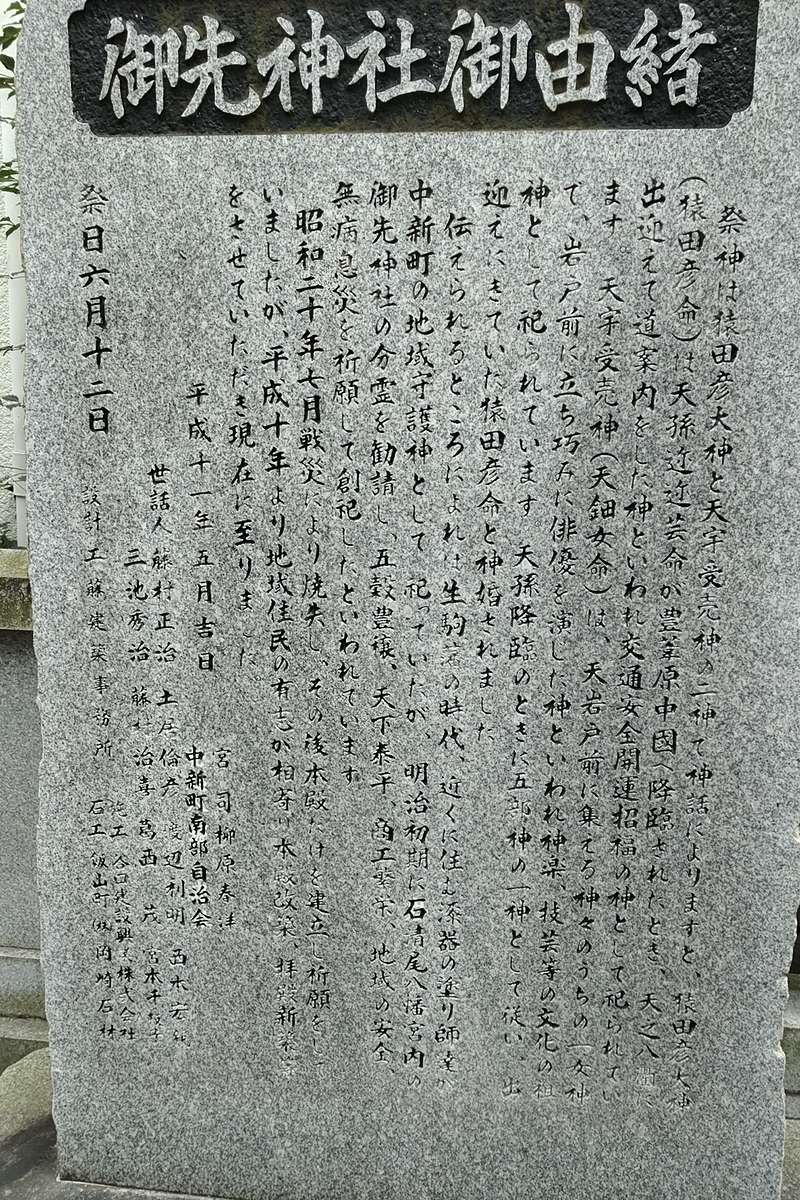 御先神社御由緒
祭神は猿田彦大神と天宇受売神の二神で神話によりますと、猿田彦大神
(猿田彦命)は天孫迩迩芸命が豊葦原中国へ降臨されたとき、天之八衢に
出迎えて道案内をした神といわれ交通安全開運招福の神として祀られてい
ます 天宇受売神(天鈿女命)は、天岩戸前に集てる神々のうちの一女神
で、岩戸前に立ち巧みに俳優を演した神といわれ神楽、技芸等の文化の祖
神として祀られています 天孫降臨のときに五部神の一神として従い、出
迎えにきていた猿田彦命と神婚されました
伝えられるところによれば生駒藩の時代、近くに住む漆器の塗り師達が
中新町の地域守護神として 祀っていたが、明治初期に石清尾八幡宮内の
御先神社の分霊を勧請し、五穀豊穣、天下泰平、商工繁栄、地域の安全
無病息災を祈願して創祀したといわれています
昭和二十年七月戦災により焼失し、その後本殿だけを建立し祈願をして
いましたが、平成十年より地域住民の有志が相寄り本殿改築、拝殿新築等
をさせていただき現在に至りました
平成十一年五月吉日
宮司 柳原春
中新町南部自治会
世話人 藤村正治 土居倫彦 渡辺利明 西木宏
三池秀治 藤村治喜 葛西茂 宮本千
施工 谷口建設興業株式会社
祭日六月十二日 設計 工藤建築事務所 石工 飯山町 ㈱岡崎石材